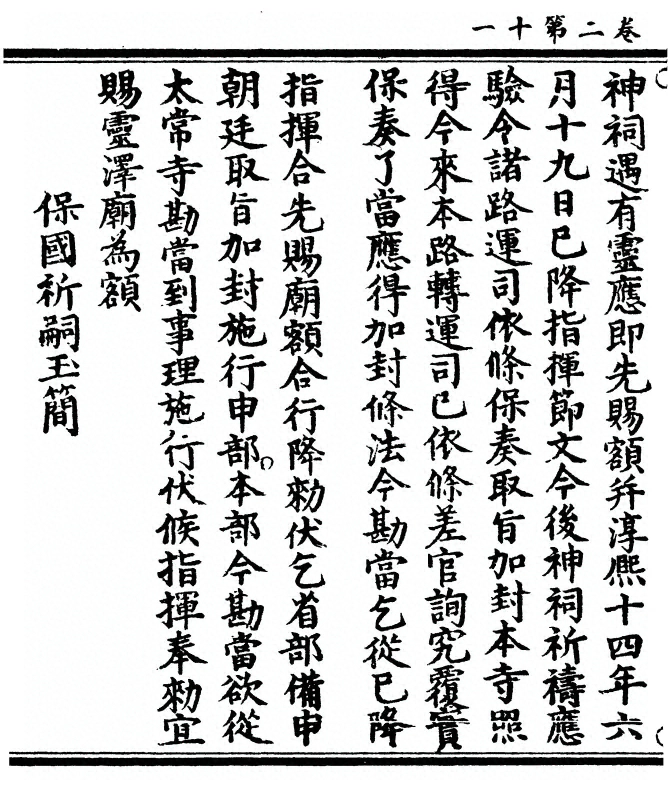 卷二第十一
神祠遇有靈應即先賜額并淳熙十四年六
月十九日已降指揮節文今後神祠祈禱應
驗令諸路運司依條保奏取旨加封本寺照
得今來本路轉運司已依條差官詢究覆實
保奏了當應得加封條法今勘當乞從已降
指揮合先賜廟額合行降勑伏乞省部備申
朝廷取旨加封施行申部○本部今勘當欲從
太常寺勘當到事理施行伏候指揮奉勑宜
賜靈澤廟為額
保國祈嗣玉簡